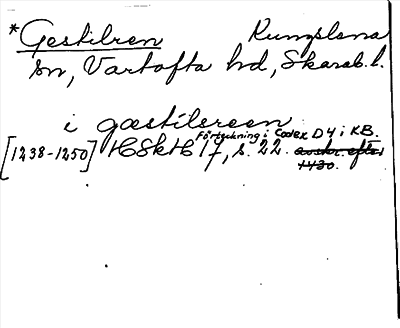 *Gestilren Kungslena
sn, Vartofta hd, Skarab. l.
i gæstilsreen
Förteckning i Codex D4 i KB.
[1238-1250] HSkH 1f, s. 22. avskr. efter
1430.